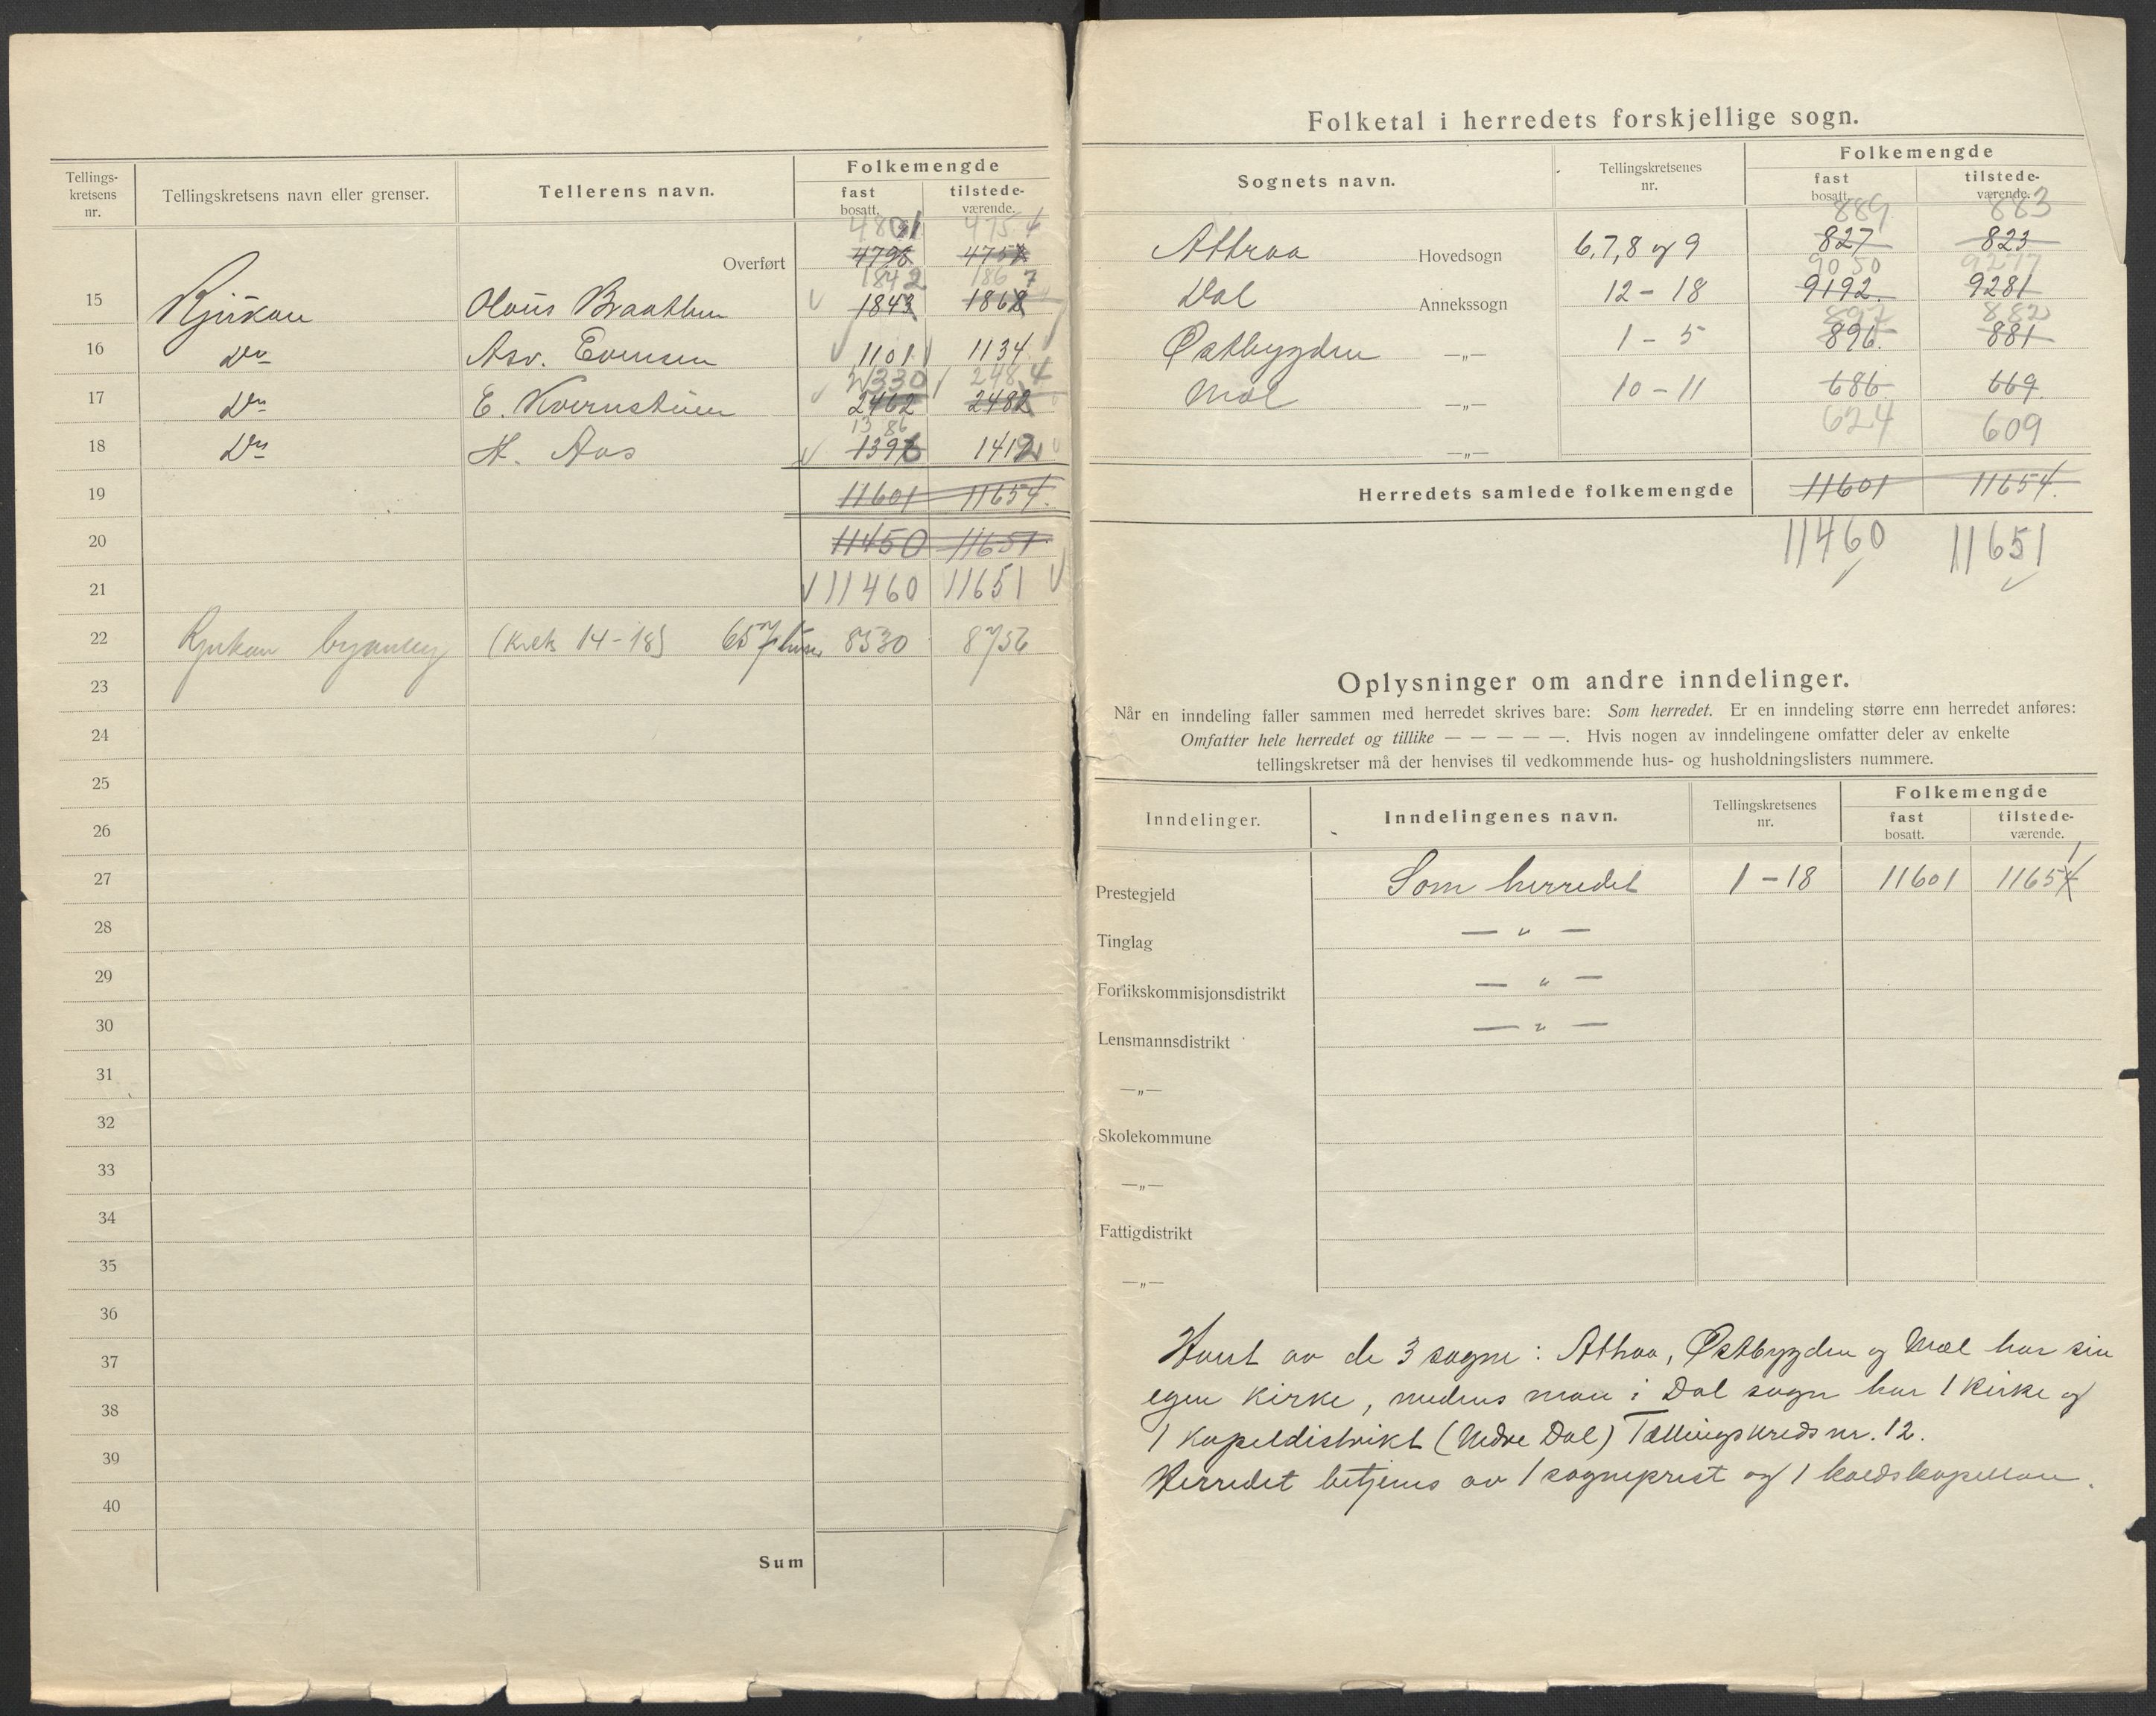 Tellings-
kretsens
nr.
Tellingskretsens navn eller grenser.
Tellerens navn.
Folkemengde
fast
bosatt.
tilstede-
værende.
4801 4754
Overført 4798 4757
1842 1867
15 Rjukan Olaus Braathen 1843 1868
16 Do Asv. Evensen 1101 1134
2330 2484
17 Do E. Kvernstuen 2462 2482
1386
18 Do H. Aas 1397 1412
19 11601 11654.
20 11450 11651
21 11460 11651
22 Rjukan bymessig (krets 14-18) 657 hus 8530 8756
23
24
25
26
27
28
29
30
31
32
33
34
35
36
37
38
39
40
Sum
Folketal i herredets forskjellige sogn.
Sognets navn.
Tellingskretsenes
nr.
Folkemengde
fast
bosatt.
tilstede-
værende.
889 883
Attraa Hovedsogn 6, 7, 8 og 9 827 823
9050 9277
Dal Annekssogn 12 - 18 9192. 9281
897 882
Østbygden —„— 1 - 5 896. 881
Mæl —„— 10 - 11 686 669.
624 609
—„—
Herredets samlede folkemengde 11601 11654.
11460 11651
Oplysninger om andre inndelinger.
Når en inndeling faller sammen med herredet skrives bare: Som herredet. Er en inndeling større enn herredet anføres:
Omfatter hele herredet og tillike — — — — —. Hvis nogen av inndelingene omfatter deler av enkelte
tellingskretser må der henvises til vedkommende hus- og husholdningslisters nummere.
Inndelinger.
Inndelingenes navn.
Tellingskretsenes
nr.
Folkemengde
fast
bosatt.
tilstede-
værende.
Prestegjeld Som herredet 1 - 18 11601 11654 1
Tinglag — „ —
Forlikskommisjonsdistrikt — „ —
Lensmannsdistrikt — „ —
—„—
Skolekommune
—„—
Fattigdistrikt
—„—
Hvert av de 3 sogne: Attraa, Østbygden og Mæl har sin
egen kirke, medens man i Dal sogn har 1 kirke og
1 kapeldistrikt (Nedre Dal) Tællingskreds nr. 12.
Herredet betjenes av 1 sogneprest og 1 kaldskapellan.